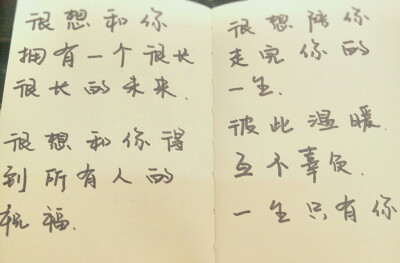 很想和你
拥有一个很长
很长的未来.
很想和你得
到所有人的
祝福.
很想陪你
走完你的
一生.
彼此温暖.
互不辜负.
一生只有你